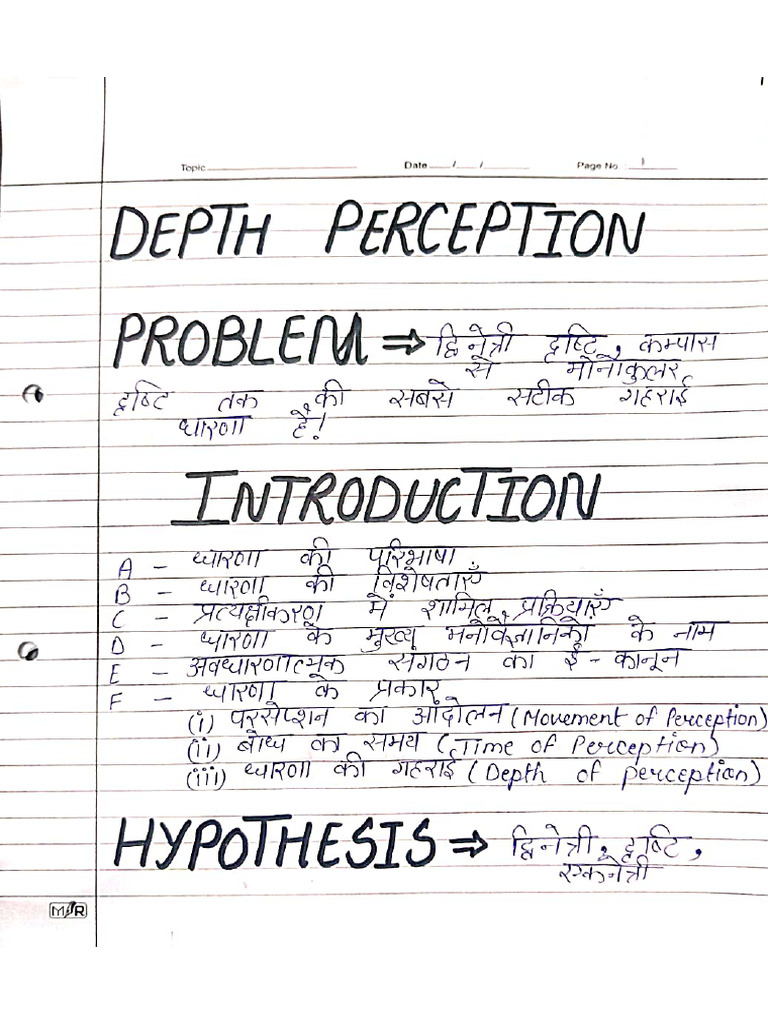 1
Topic Date / / Page No 1
DEPTH PERCEPTION
PROBLEM ⇒ द्विनेत्री दृष्टि, कम्पास
से मोनोकुलर
दृष्टि तक की सबसे सटीक गहराई
धारणा है!
INTRODUCTION
A - धारणा की परिभाषा
B - धारणा की विशेषताएँ
C - प्रत्यक्षीकरण में शामिल प्रक्रियाएँ
D - धारणा के मुख्य मनोवैज्ञानिको के नाम
E - अवधारणात्मक संगठन का ई - कानून
F - धारणा के प्रकार
(i) परसेप्शन का आंदोलन (Movement of Perception)
(ii) बोध का समय (Time of Perception)
(iii) धारणा की गहराई (Depth of perception)
HYPOTHESIS ⇒ द्विनेत्री, दृष्टि,
एकनेत्री
MR